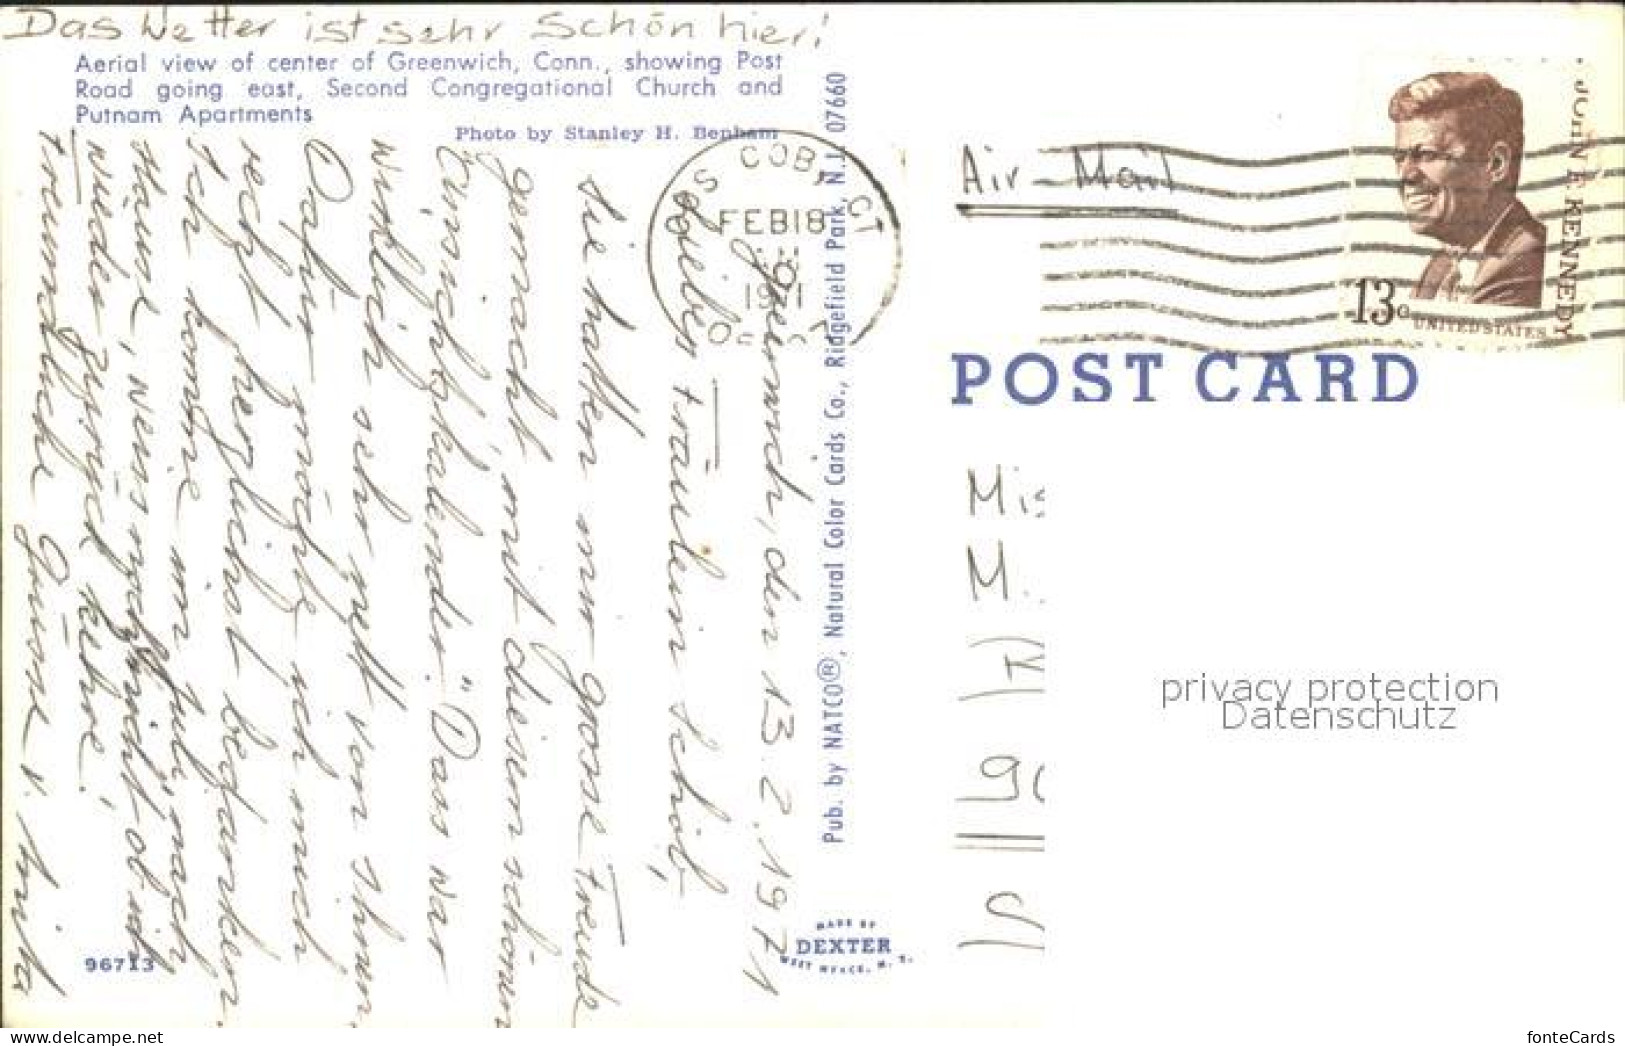 Das Wetter ist sehr schön hier!
Aerial view of center of Greenwich, Conn., showing Post
Road going east, Second Congregational Church and
Putnam Apartments
Photo by Stanley H. Benham
Greenwich, den 13.2.1971
Liebes Fräulein Schöb,
Sie hatten mir grosse Freude
gemacht, mit diesem schönen
"Dass war
wirklich sehr nett von Ihnen,
Dafür möchte ich mich
recht herzlichst bedanken.
Ich komme im Juli nach
Hause, weiss noch nicht ob ich
wieder zurück kehre.
Freundliche Grüsse v. Anita
96713
Pub. by NATCO®, Natural Color Cards Co., Ridgefield Park, N.J. 07660
MADE BY
DEXTER
WEST NYACK, N. Y.
COS COB, CT
FEB 18
1971
Air Mail
JOHN F. KENNEDY
13c
UNITED STATES
POST CARD
Mis
M
privacy protection
Datenschutz
fonteCards